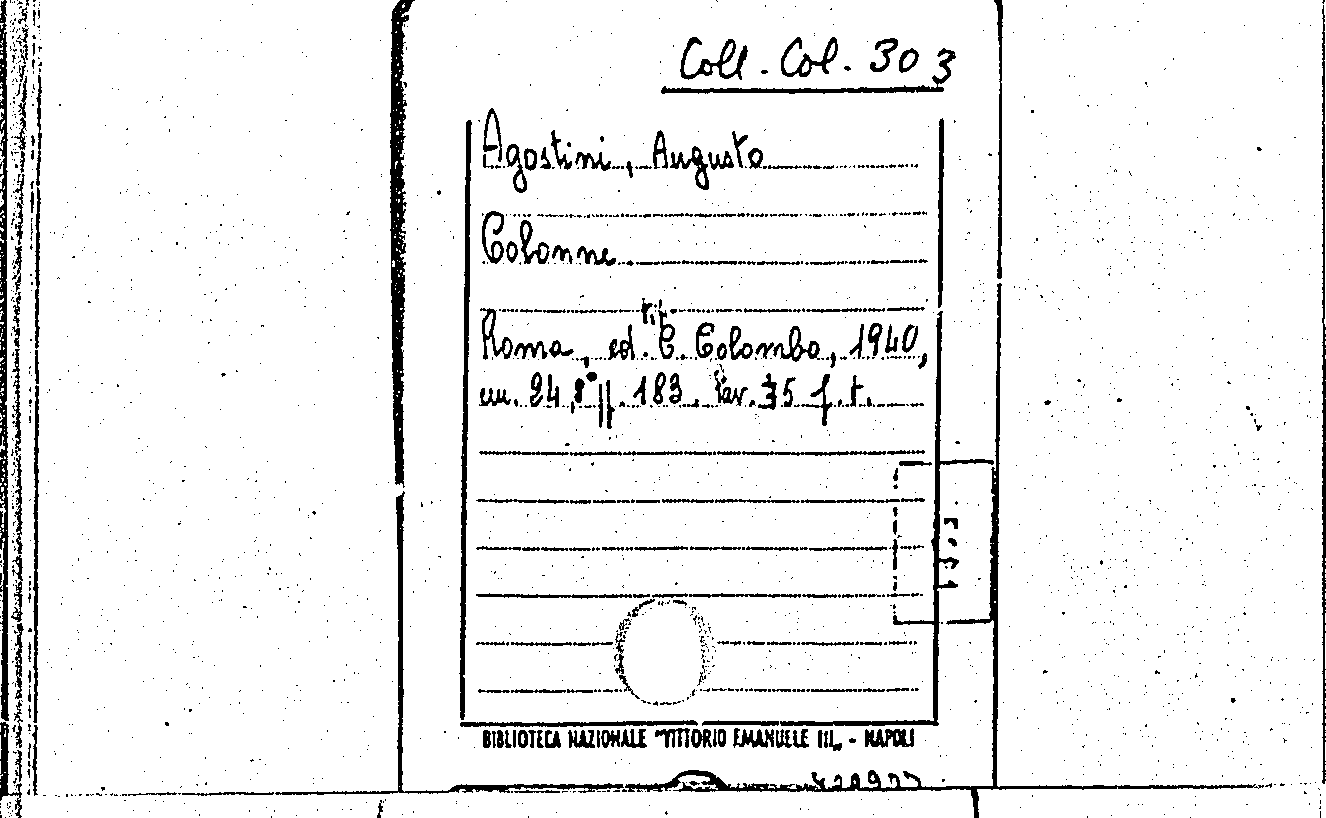 Coll. Col. 303
Agostini, Augusto
Colonne.
tip.
Roma, ed. C. Colombo, 1940,
cm. 24, 8° pp. 183. tav. 35 f. t.
BIBLIOTECA NAZIONALE "VITTORIO EMANUELE III„ - NAPOLI